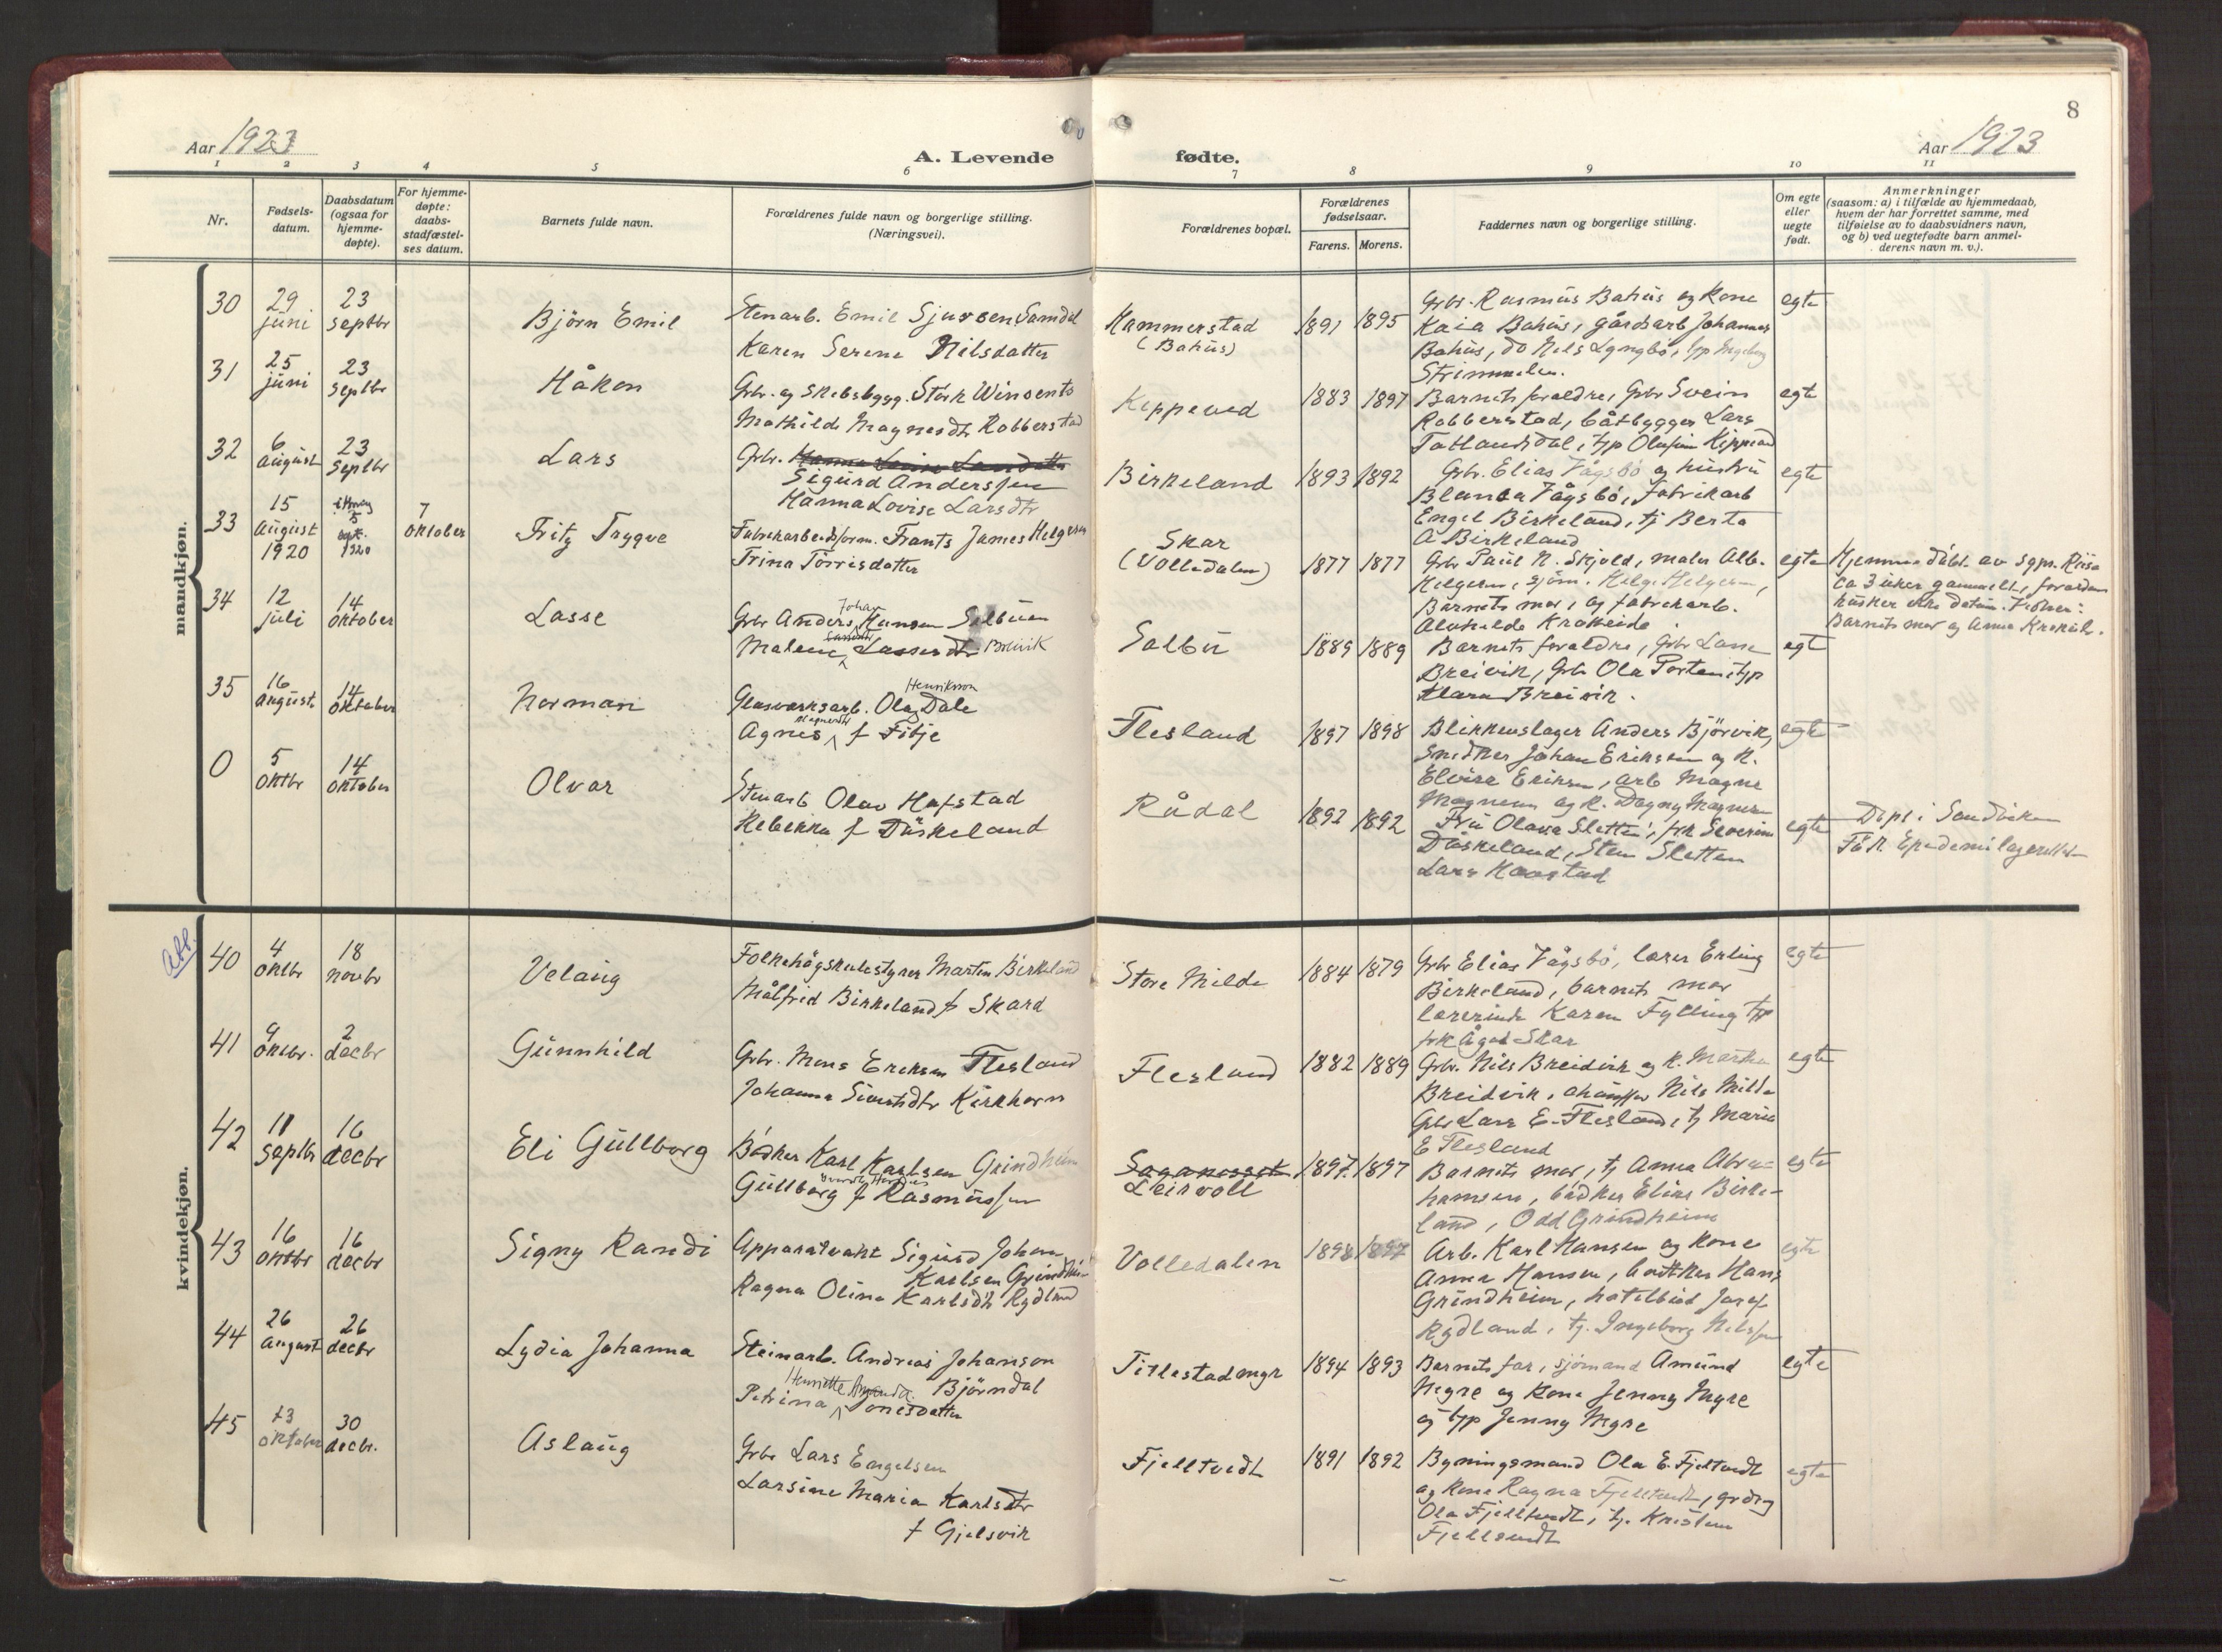 8
Aar 1923
A. Levende fødte.
Aar 1923
1 2 3 4 5 6 7 8 9 10 11
Nr.
Fødsels-
datum.
Daabsdatum
(ogsaa for
hjemme-
døpte).
For hjemme-
døpte:
daabs-
stadfæstel-
ses datum.
Barnets fulde navn.
Forældrenes fulde navn og borgerlige stilling.
(Næringsvei).
Forældrenes bopæl.
Forældrenes
fødselsaar.
Farens. Morens.
Faddernes navn og borgerlige stilling.
Om egte
eller
uegte
født.
Anmerkninger
(saasom: a) i tilfælde av hjemmedaab,
hvem der har forrettet samme, med
tilføielse av to daabsvidners navn,
og b) ved uegtefødte barn anmel-
derens navn m. v.).
mandkjøn.
30
29
juni
23
septbr
Björn Emil
Stenarb. Emil Sjursen Samdal
Karen Serene Nilsdatter
Hammerstad
(Bahus)
1891 1895
Grbr. Rasmus Bahus og kone
Kaia Bahus, gårdsarb Johannes
Bahus, do Nels Lyngbö, tjp Ingeborg
Strimmelen.
egte
31
25
juni
23
septbr
Håkon
Grbr. og skibsbygg. Störk Winsents
Mathilde Magnesdtr Robberstad
Kippeved
1883 1897
Barnets foreldre, Grbr Svein
Robberstad, båtbygger Lars
Totlandsdal, tjp Olufine Kippeved
egte
32
6
August
23
septbr
Lars
Grbr. Hanna Lovise Larsdatter
Sigurd Anderssen
Hanna Lovise Larsdtr
Birkeland
1893 1892
Grbr. Elias Vågsbö og hustru
Blanca Vågsbö, fabrikarb
Engel Birkeland, tj Berta
A Birkeland
egte
33
15
August
1920
5
sept.
1920
7
oktober
Fritz Trygve
Fabrikarbeidsform. Frants James Helgesen
Trina Torrisdatter
Skar
(Volledalen)
1877 1877
Grbr Paul N. Skjold, maler Alb.
Helgesen, sjöm. Helge Helgesen,
Barnets mor, og fabrikarb.
Alvhilde Krokeide
egte
Hjemmedöbt av sgpr. Riise
ca 3 uker gammelt, foreldrene
husker ikke datum. Vidner:
Barnets mor og Anna Krokeide.
34
12
juli
14
oktober
Lasse
Grbr Anders Johan Hansen Salbuen
Malene Lassesdtr Breivik
Salbu
1889 1889
Barnets foreldre, Grbr Lasse
Breivik, Grbr Ola Porten, tjp
Klara Breivik.
egte
35
16
august
14
oktober
Norman
Glasverksarb. Olaf Henriksson Dale
Agnes Magnesdtr f Fitje
Flesland
1897 1898
Blikkenslager Anders Björvik,
Snedker Johan Eriksen og k.
Elvire Eriksen, arb Magne
Magnesen og k. Dagny Magnesen
egte
0
5
oktbr
14
oktober
Olvar
Stenarb Olav Hafstad
Rebekka f Duskeland
Rådal
1892 1892
Fru Olava Sletten, frk Severine
Duskeland, Sten Sletten
Lars Haastad
egte
Döpt i Sandviken
Få k. Epidemilagerettet
kvindekjøn.
Att.
40
4
oktbr
18
novbr
Velaug
Folkehögskulestyrer Martin Birkeland
Målfrid Birkeland f Skard
Store Milde
1884 1879
Grbr Elias Vågsbö, lærer Erling
Birkeland, barnets mor
lærerinde Karen Fylling tjp
frk Ågot Skar
egte
41
9
oktbr.
2
decbr
Gunnhild
Grbr. Mons Eriksen Flesland
Johanna Sivertsdtr Kirkhorn
Flesland
1882 1889
Grbr. Nils Breidvik og k. Martha
Breidvik, chauffør Nils Milde
Grbr Lars E. Flesland, tj Marie
E Flesland
egte
42
11
septbr
16
decbr
Eli Gullborg
Bödker Karl Karlsen Grindheim
Gullborg f Rasmussen
Leirvoll
1897 1897
Barnets mor, tj Anna Abra=
hamsen, bödker Elias Birke-
land, Odd Grindheim
egte
43
16
oktbr
16
decbr
Signy Randi
Apparatvakt Sigurd Johan
Karlsen Grindheim
Ragna Olina Karlsdtr Rydland
Volledalen
1898 1897
Arb. Karl Hansen og kone
Anna Hansen, bødtker Hans
Grindheim, hotelbud Josef
Rydland, tj. Ingeborg Nilssen
egte
44
26
august
26
decbr
Lydia Johanna
Steinarb. Andreas Johanson
Björndal
Petrina Henriette Amanda Jonesdatter
Titlestadmyr
1894 1893
Barnets far, sjömand Amund
Mgre og kone Jenny Mgre
og tjp Jenny Mgre
egte
45
23
oktober
30
decbr.
Aslaug
Grbr Lars Engelsen
Larsine Maria Karlsdtr
f Gjelsvik
Fjelltvedt
1891 1892
Bygningsmand Ola E. Fjeltvedt
og kone Ragna Fjelltvedt, grdbrg
Ola Fjelltvedt, tj. Kristine
Fjelltvedt
egte